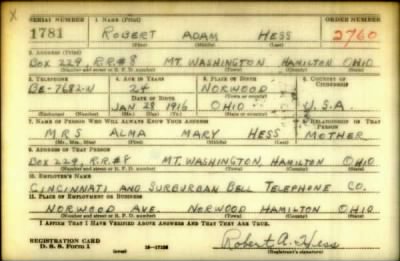 X
SERIAL NUMBER 1. NAME (Print) ORDER NUMBER
1781 ROBERT ADAM HESS 2760
(First) (Middle) (Last)
2. ADDRESS (Print)
BOX 229, R.R.#8 MT. WASHINGTON, HAMILTON OHIO
(Number and street or R. F. D. number) (Town) (County) (State)
3. TELEPHONE 4. AGE IN YEARS 5. PLACE OF BIRTH 6. COUNTRY OF CITIZENSHIP
BE-7682-W 24 NORWOOD
DATE OF BIRTH (Town or county)
JAN 28 1916 OHIO U.S.A.
(Exchange) (Number) (Mo.) (Day) (Yr.) (State or country)
7. NAME OF PERSON WHO WILL ALWAYS KNOW YOUR ADDRESS 8. RELATIONSHIP OF THAT PERSON
MRS ALMA MARY HESS MOTHER
(Mr., Mrs., Miss) (First) (Middle) (Last)
9. ADDRESS OF THAT PERSON
BOX 229, R.R.#8 MT. WASHINGTON, HAMILTON OHIO
(Number and street or R. F. D. number) (Town) (County) (State)
10. EMPLOYER'S NAME
CINCINNATI AND SURBURBAN BELL TELEPHONE CO.
11. PLACE OF EMPLOYMENT OR BUSINESS
NORWOOD AVE. NORWOOD HAMILTON OHIO
(Number and street or R. F. D. number) (Town) (County) (State)
I AFFIRM THAT I HAVE VERIFIED ABOVE ANSWERS AND THAT THEY ARE TRUE.
REGISTRATION CARD
D. S. S. Form 1 (over) Robert A. Hess
(Registrant's signature)